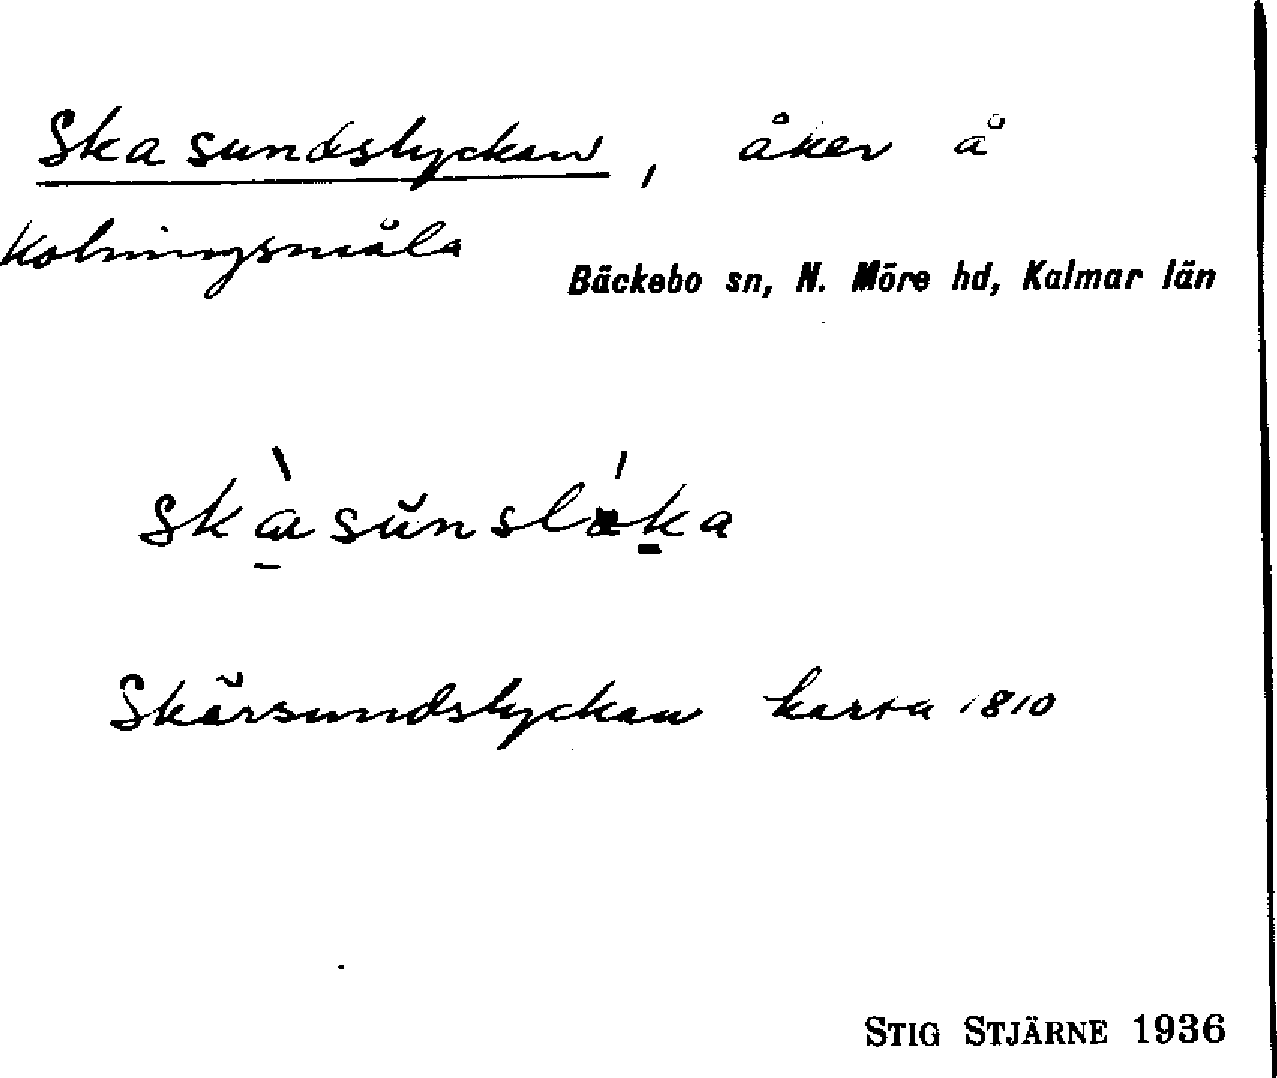 Skasundslyckan, åker å
Kolningsmåla
Bäckebo sn, N. Möre hd, Kalmar län
Skärsundslyckan karta 1810
STIG STJÄRNE 1936